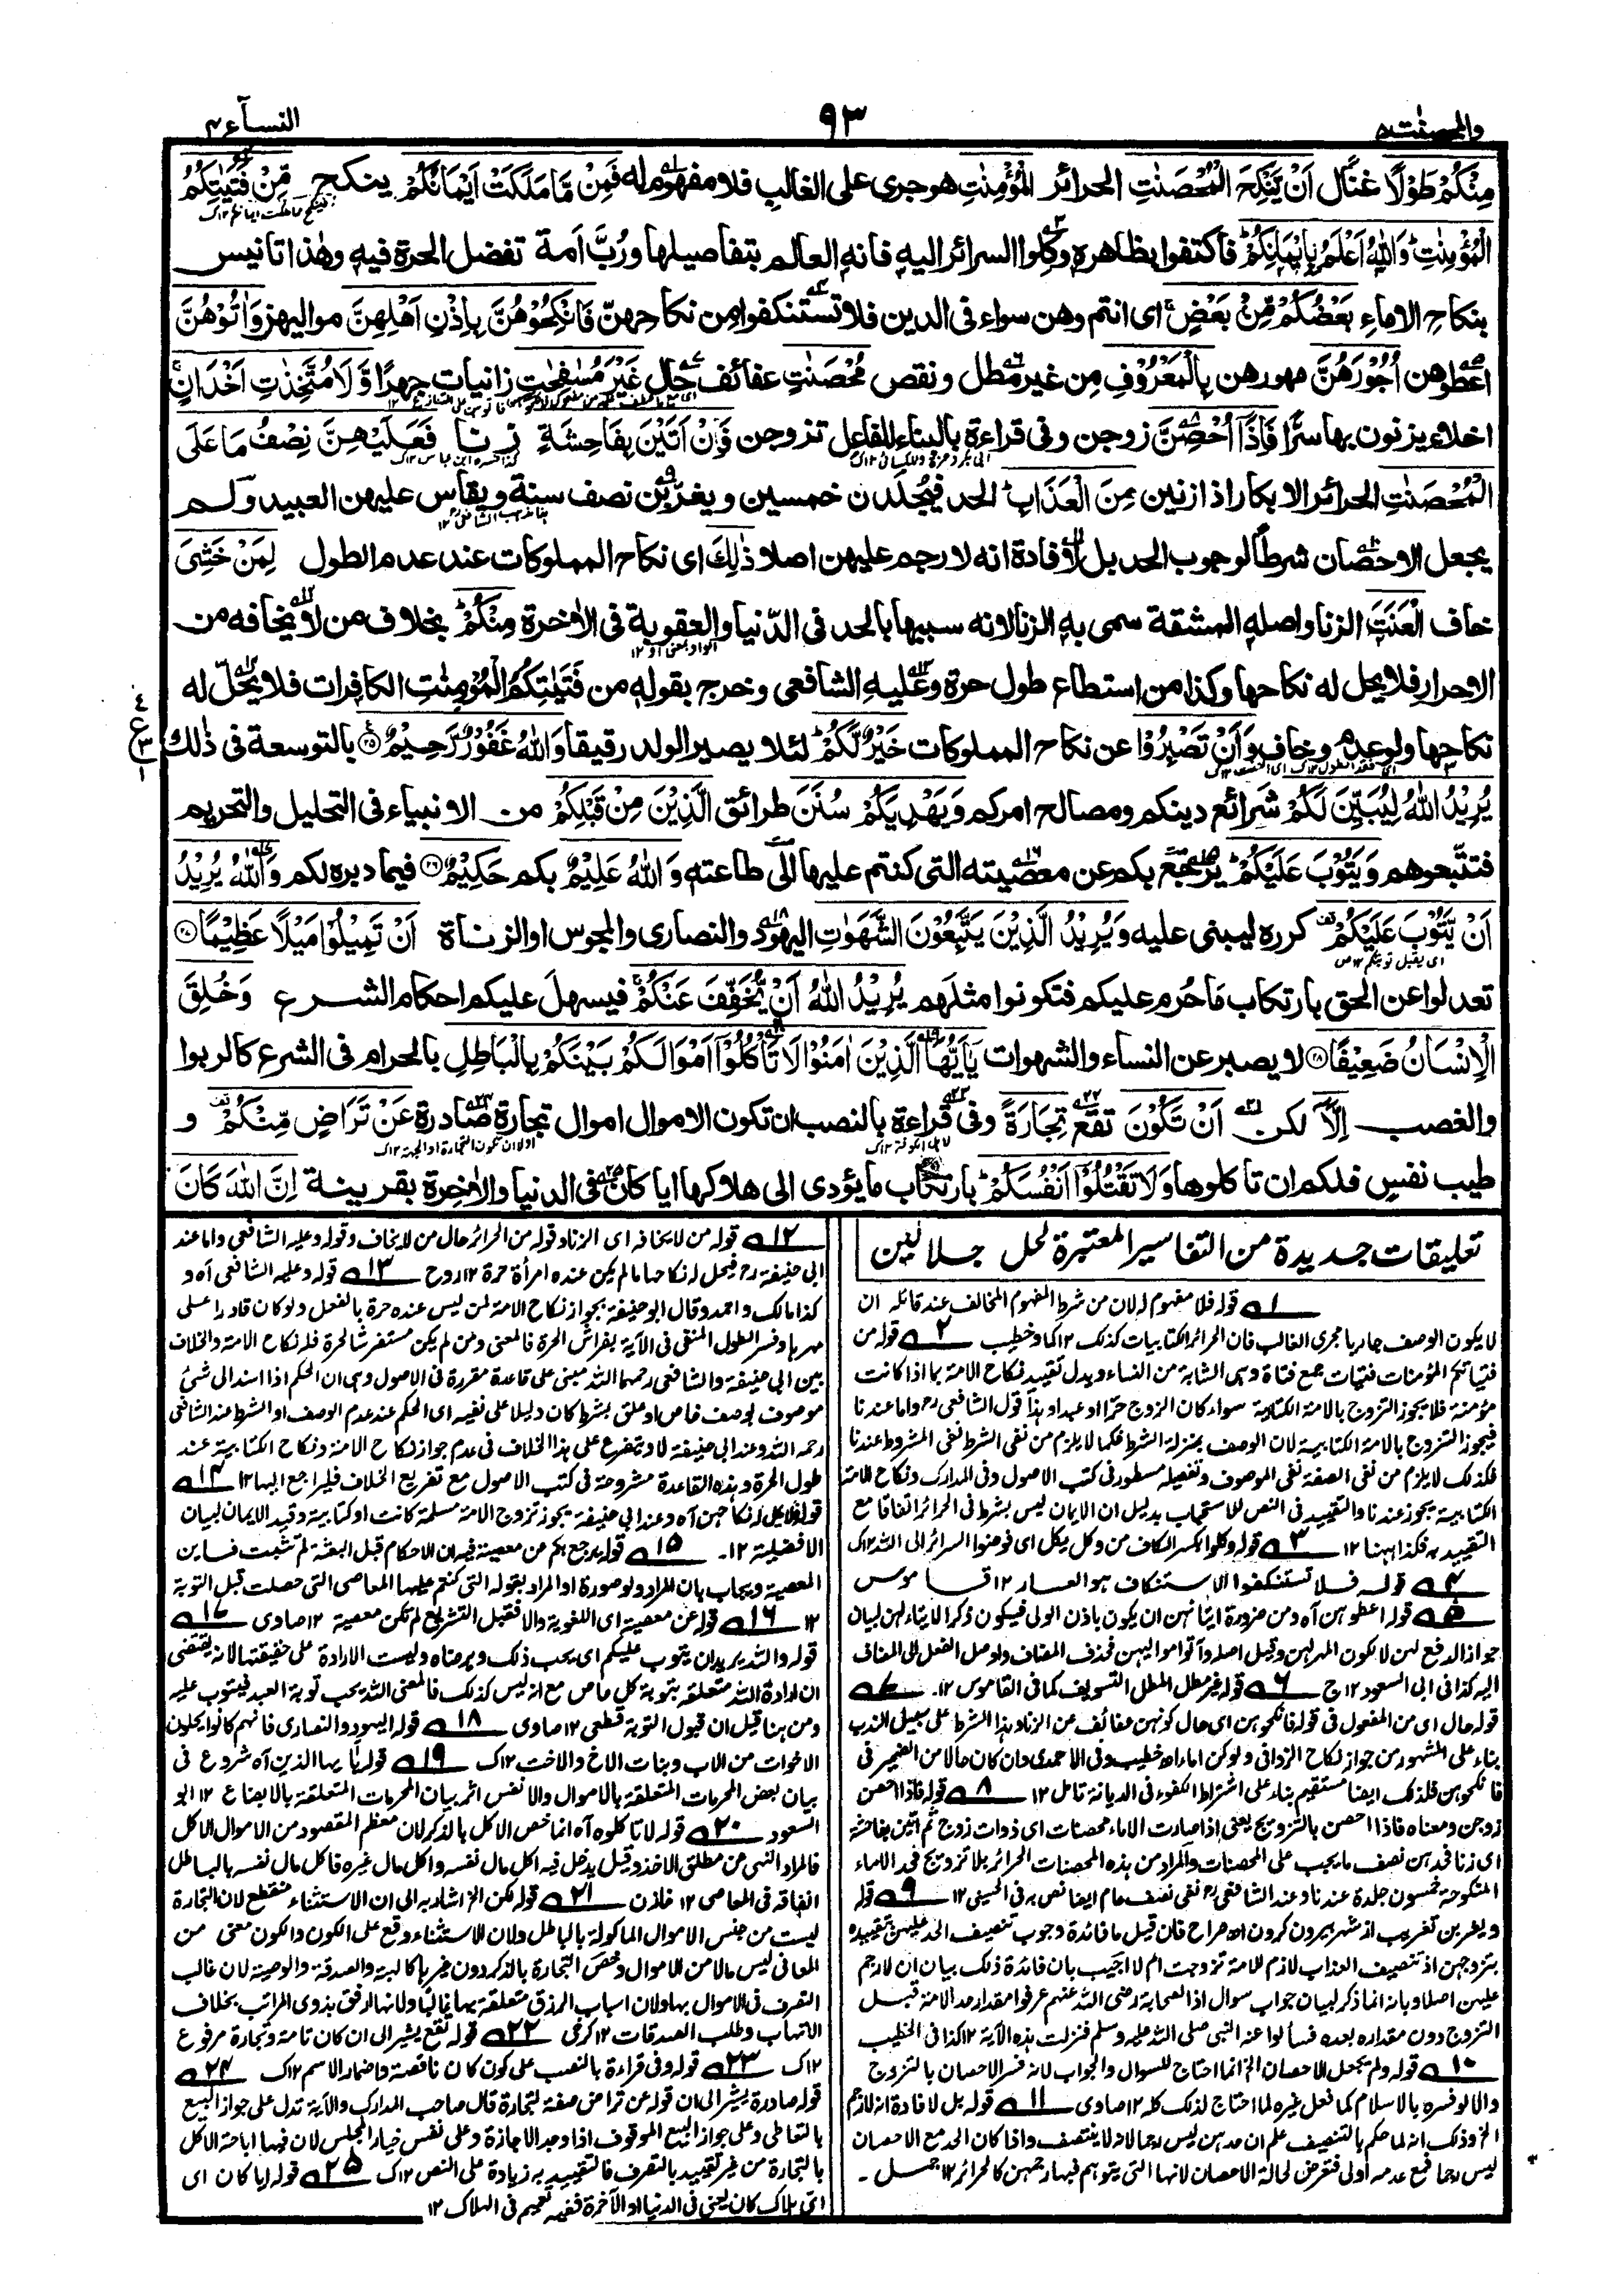 والمحصنت ۵
۹۳
النسآء ۴
مِنْكُمْ طَوْلًا غنًال اَنْ يَّنْكِحَ الْمُحْصَنٰتِ الحرائر الْمُؤْمِنٰتِ هو جرى على الغالب فلا مفهوم له فَمِنْ مَّا مَلَكَتْ اَيْمَانُكُمْ ينكح مِّنْ فَتَيٰتِكُمُ
الْمُؤْمِنٰتِ ؕ وَاللّٰهُ اَعْلَمُ بِاِيْمَانِكُمْ ؕ فاكتفوا بظاهره وكلوا السرائر اليه فانه العالم بتفاصيلها ورُبَّ اَمة تفضل الحرة فيه وهٰذا تانيس
بنكاح الاماء بَعْضُكُمْ مِّنْ بَعْضٍ ۚ اى انتم وهن سواء فى الدين فلا تستنكفوا من نكاحهنّ فَانْكِحُوْهُنَّ بِاِذْنِ اَهْلِهِنَّ مواليهن وَاٰتُوْهُنَّ
اعطوهن اُجُوْرَهُنَّ مهورهن بِالْمَعْرُوْفِ من غير مطل ونقص مُحْصَنٰتٍ عفائف حال غَيْرَ مُسٰفِحٰتٍ زانيات جهرًا وَّلَا مُتَّخِذٰتِ اَخْدَانٍ ۚ
اخلاء يزنون بها سرًّا فَاِذَآ اُحْصِنَّ زوجن وفى قراءة بالبناء للفاعل تزوجن فَاِنْ اَتَيْنَ بِفَاحِشَةٍ زنا فَعَلَيْهِنَّ نِصْفُ مَا عَلَى
الْمُحْصَنٰتِ الحرائر الابكار اذا زنين مِنَ الْعَذَابِ ؕ الحد فيجلدن خمسين ويغرّبن نصف سنة ويقاس عليهن العبيد ولم
يجعل الاحصان شرطاً لوجوب الحد بل لافادة انه لا رجم عليهن اصلا ذٰلِكَ اى نكاح المملوكات عند عدم الطول لِمَنْ خَشِىَ
خاف الْعَنَتَ الزنا واصله المشقة سمى به الزنا لانه سببها بالحد فى الدّنيا والعقوبة فى الاٰخرة مِنْكُمْ ؕ بخلاف من لا يخافه من
الاحرار فلا يحل له نكاحها وكذا من استطاع طول حرة وعليه الشافعى وخرج بقوله من فَتَيٰتِكُمُ الْمُؤْمِنٰتِ الكافرات فلا يحلّ له
نكاحها ولو عدم وخاف وَاَنْ تَصْبِرُوْا عن نكاح المملوكات خَيْرٌ لَّكُمْ ؕ لئلا يصير الولد رقيقا وَاللّٰهُ غَفُوْرٌ رَّحِيْمٌ ۲۵ بالتوسعة فى ذٰلك
يُرِيْدُ اللّٰهُ لِيُبَيِّنَ لَكُمْ شرائع دينكم ومصالح امركم وَيَهْدِيَكُمْ سُنَنَ طرائق الَّذِيْنَ مِنْ قَبْلِكُمْ من الانبياء فى التحليل والتحريم
فتتّبعوهم وَيَتُوْبَ عَلَيْكُمْ ؕ يرجع بكم عن معصيته التى كنتم عليها الى طاعته وَاللّٰهُ عَلِيْمٌ بكم حَكِيْمٌ ۲۶ فيما دبره لكم وَاللّٰهُ يُرِيْدُ
اَنْ يَّتُوْبَ عَلَيْكُمْ كرره ليبنى عليه وَيُرِيْدُ الَّذِيْنَ يَتَّبِعُوْنَ الشَّهَوٰتِ اليهود والنصارى والمجوس او الزناة اَنْ تَمِيْلُوْا مَيْلًا عَظِيْمًا ۲۷
تعدلوا عن الحق بارتكاب ما حُرم عليكم فتكونوا مثلهم يُرِيْدُ اللّٰهُ اَنْ يُّخَفِّفَ عَنْكُمْ ۚ فيسهل عليكم احكام الشرع وَخُلِقَ
الْاِنْسَانُ ضَعِيْفًا ۲۸ لا يصبر عن النساء والشهوات يٰٓاَيُّهَا الَّذِيْنَ اٰمَنُوْا لَا تَاْكُلُوْٓا اَمْوَالَكُمْ بَيْنَكُمْ بِالْبَاطِلِ بالحرام فى الشرع كالربوا
والغصب اِلَّآ لكن اَنْ تَكُوْنَ تقع تِجَارَةً وفى قراءة بالنصب ان تكون الاموال اموال تجارة صادرة عَنْ تَرَاضٍ مِّنْكُمْ و
طيب نفس فلكم ان تاكلوها وَلَا تَقْتُلُوْٓا اَنْفُسَكُمْ ؕ بارتكاب ما يؤدى الى هلاكها ايا كان فى الدنيا والاٰخرة بقرينة اِنَّ اللّٰهَ كَانَ
تعليقات جديدة من التفاسير المعتبرة لحل جلالين
۱ قوله فلا مفهوم له لان من شرط المفهوم المخالف عند قائله ان
لا يكون الوصف جاريا مجرى الغالب فان الحرائر الكتابيات كذلك ۱۲ کما وخطيب ۲ قوله من
فتياتكم المؤمنات فتيات جمع فتاة وهى الشابة من النساء ويدل تقييد نكاح الامة بما اذا كانت
مؤمنة فلا يجوز التزوج بالامة الكتابية سواء كان الزوج حرًا او عبدا وهذا قول الشافعى رح واما عندنا
فيجوز التزوج بالامة الكتابية لان الوصف بمنزلة الشرط فكما لا يلزم من نفى الشرط نفى المشروط عندنا
فكذلك لا يلزم من نفى الصفة نفى الموصوف وتفصيله مسطور فى كتب الاصول وفى المدارك ونكاح الامة
الكتابية يجوز عندنا والتقييد فى النص للاستحباب بدليل ان الايمان ليس بشرط فى الحرائر اتفاقا مع
التقييد به فكذا ههنا ۱۲ ۳ قوله وكلوا بكسر الكاف من وكل يكل اى فوضوا السرائر الى الله ۱۲ک
۴ قوله فلا تستنكفوا الاستنكاف هو العار ۱۲ قاموس
۵ قوله اعطوهن آه ومن ضرورة ايتائهن ان يكون باذن الولى فيكون ذكر الايتاء لهن لبيان
جواز الدفع لهن لا لكون المهر لهن وقيل اصله وآتوا مواليهن فحذف المضاف واوصل الفعل الى المضاف
اليه كذا فى ابى السعود ۱۲ج ۶ قوله غير مطل المطل التسويف كما فى القاموس ۱۲ ۷
قوله حال اى من المفعول فى قوله فانكحوهن اى حال كونهن عفائف عن الزنا وهذا الشرط على سبيل الندب
بناء على المشهور من جواز نكاح الزوانى ولو كن اماء اه خطيب وفى الاحمدى وان كان حالا من الضمير فى
فانكحوهن فلذلك ايضا مستقيم بناء على اشتراط الكفوء فى الديانة تامل ۱۲ ۸ قوله فاذا احصن
زوجن ومعناه فاذا احصن بالتزويج يعنى اذا صارت الاماء محصنات اى ذوات زوج ثم اتين بفاحشة
اى زنا فحدهن نصف ما يجب على المحصنات والمراد من هذه المحصنات الحرائر بلا تزويج فحد الاماء
المنكوحة خمسون جلدة عندنا وعند الشافعى رح نفى نصف عام ايضا نص به فى الحسينى ۱۲ ۹ قوله
ويغربن تغريب از شهر بيرون كردن اه صراح فان قيل ما فائدة وجوب تنصيف الحد عليهن بتقييده
بتزوجهن اذ تنصيف العذاب لازم للامة تزوجت ام لا اجيب بان فائدة ذلك بيان ان لا رجم
عليهن اصلا وبانه انما ذكر لبيان جواب سوال اذ الصحابة رضى الله عنهم عرفوا مقدار حد الامة قبل
التزوج دون مقداره بعده فسألوا عنه النبى صلى الله عليه وسلم فنزلت هذه الآية ۱۲ كذا فى الخطيب
۱۰ قوله ولم يجعل الاحصان الخ انما احتاج للسوال والجواب لانه فسر الاحصان بالتزوج
والا لو فسره بالاسلام كما فعل غيره لما احتاج لذلك كله ۱۲ صاوى ۱۱ قوله بل لافادة انه لا رجم
الخ وذلك انه لما حكم بالتنصيف علم ان حدهن ليس رجما لانه لا يتنصف واذا كان الحد مع الاحصان
ليس رجما فمع عدمه اولى فتعرض لحالة الاحصان لانها التى يتوهم فيها رجمهن كالحرائر ۱۲ جمل ۔
۱۲ قوله من لا يخافه اى الزنا وقوله من الحرائر حال من لا يخاف وقوله وعليه الشافعى واما عند
ابى حنيفة رح فيحل له نكاحها ما لم يكن عنده امرأة حرة ۱۲ روح ۱۳ قوله وعليه الشافعى آه و
كذا مالك واحمد وقال ابو حنيفة بجواز نكاح الامة لمن ليس عنده حرة بالفعل ولو كان قادرا على
مهرها وفسر الطول المنفى فى الآية بفراش الحرة فالمعنى ومن لم يكن مستفرشا لحرة فله نكاح الامة والخلاف
بين ابى حنيفة والشافعى رحمهما الله مبنى على قاعدة مقررة فى الاصول وهى ان الحكم اذا اسند الى شئ
موصوف بوصف خاص او علق بشرط كان دليلا على نفيه اى الحكم عند عدم الوصف او الشرط عند الشافعى
رحمه الله وعند ابى حنيفة لا ويتفرع على هذا الخلاف فى عدم جواز نكاح الامة ونكاح الكتابية عند
طول الحرة وهذه القاعدة مشروحة فى كتب الاصول مع تفريع الخلاف فليراجع اليها ۱۲ ۱۴
قوله فلا يحل له نكاحهن آه وعند ابى حنيفة يجوز تزوج الامة مسلمة كانت او كتابية وقيد الايمان لبيان
الافضلية ۱۲۔ ۱۵ قوله يرجع بكم من معصية فيه ان الاحكام قبل البعثة لم تثبت فاين
المعصية ويجاب بان المراد ولو صورة او المراد بقوله التى كنتم عليها المعاصى التى حصلت قبل التوبة
۱۲ ۱۶ قوله عن معصية اى اللغوية والا فقبل التشريع لم تكن معصية ۱۲ صاوى ۱۷
قوله والله يريد ان يتوب عليكم اى يحب ذلك ويرضاه وليست الارادة على حقيقتها لانه يقتضى
ان ارادة الله متعلقة بتوبة كل عاص مع انه ليس كذلك فالمعنى الله يحب توبة العبد فيتوب عليه
ومن هنا قيل ان قبول التوبة قطعى ۱۲ صاوى ۱۸ قوله اليهود والنصارى فانهم كانوا يحلون
الاخوات من الاب وبنات الاخ والاخت ۱۲ک ۱۹ قوله يا ايها الذين آه شروع فى
بيان بعض المحرمات المتعلقة بالاموال والانفس اثر بيان المحرمات المتعلقة بالابضاع ۱۲ ابو
السعود ۲۰ قوله لا تاكلوه آه انما خص الاكل بالذكر لان معظم المقصود من الاموال الاكل
فالمراد النهى عن مطلق الاخذ وقيل يدخل فيه اكل مال نفسه واكل مال غيره فاكل مال نفسه بالباطل
انفاقه فى المعاصى ۱۲ خازن ۲۱ قوله لكن الخ اشار به الى ان الاستثناء منقطع لان التجارة
ليست من جنس الاموال الماكولة بالباطل ولان الاستثناء وقع على الكون والكون معنى من
المعانى ليس مالا من الاموال وخص التجارة بالذكر دون غيرها كالهبة والصدقة والوصية لان غالب
التصرف فى الاموال بها ولان اسباب الرزق متعلقة بها غالبًا ولانها ارفق بذوى المراتب بخلاف
الاتهاب وطلب الصدقات ۱۲ كرخى ۲۲ قوله تقع يشير الى ان كان تامة وتجارة مرفوع
۱۲ک ۲۳ قوله وفى قراءة بالنصب على كون كان ناقصة واضمار الاسم ۱۲ک ۲۴
قوله صادرة يشير الى ان قوله عن تراض صفة لتجارة قال صاحب المدارك والآية تدل على جواز البيع
بالتعاطى وعلى جواز البيع الموقوف اذا وجد الاجازة وعلى نفس خيار المجلس لان فيها اباحة الاكل
بالتجارة من غير تقييد بالتفرق فالتقييد به زيادة على النص ۱۲ک ۲۵ قوله ايا كان اى
اى هلاك كان يعنى فى الدنيا او الآخرة ففيه تعميم فى الهلاك ۱۲